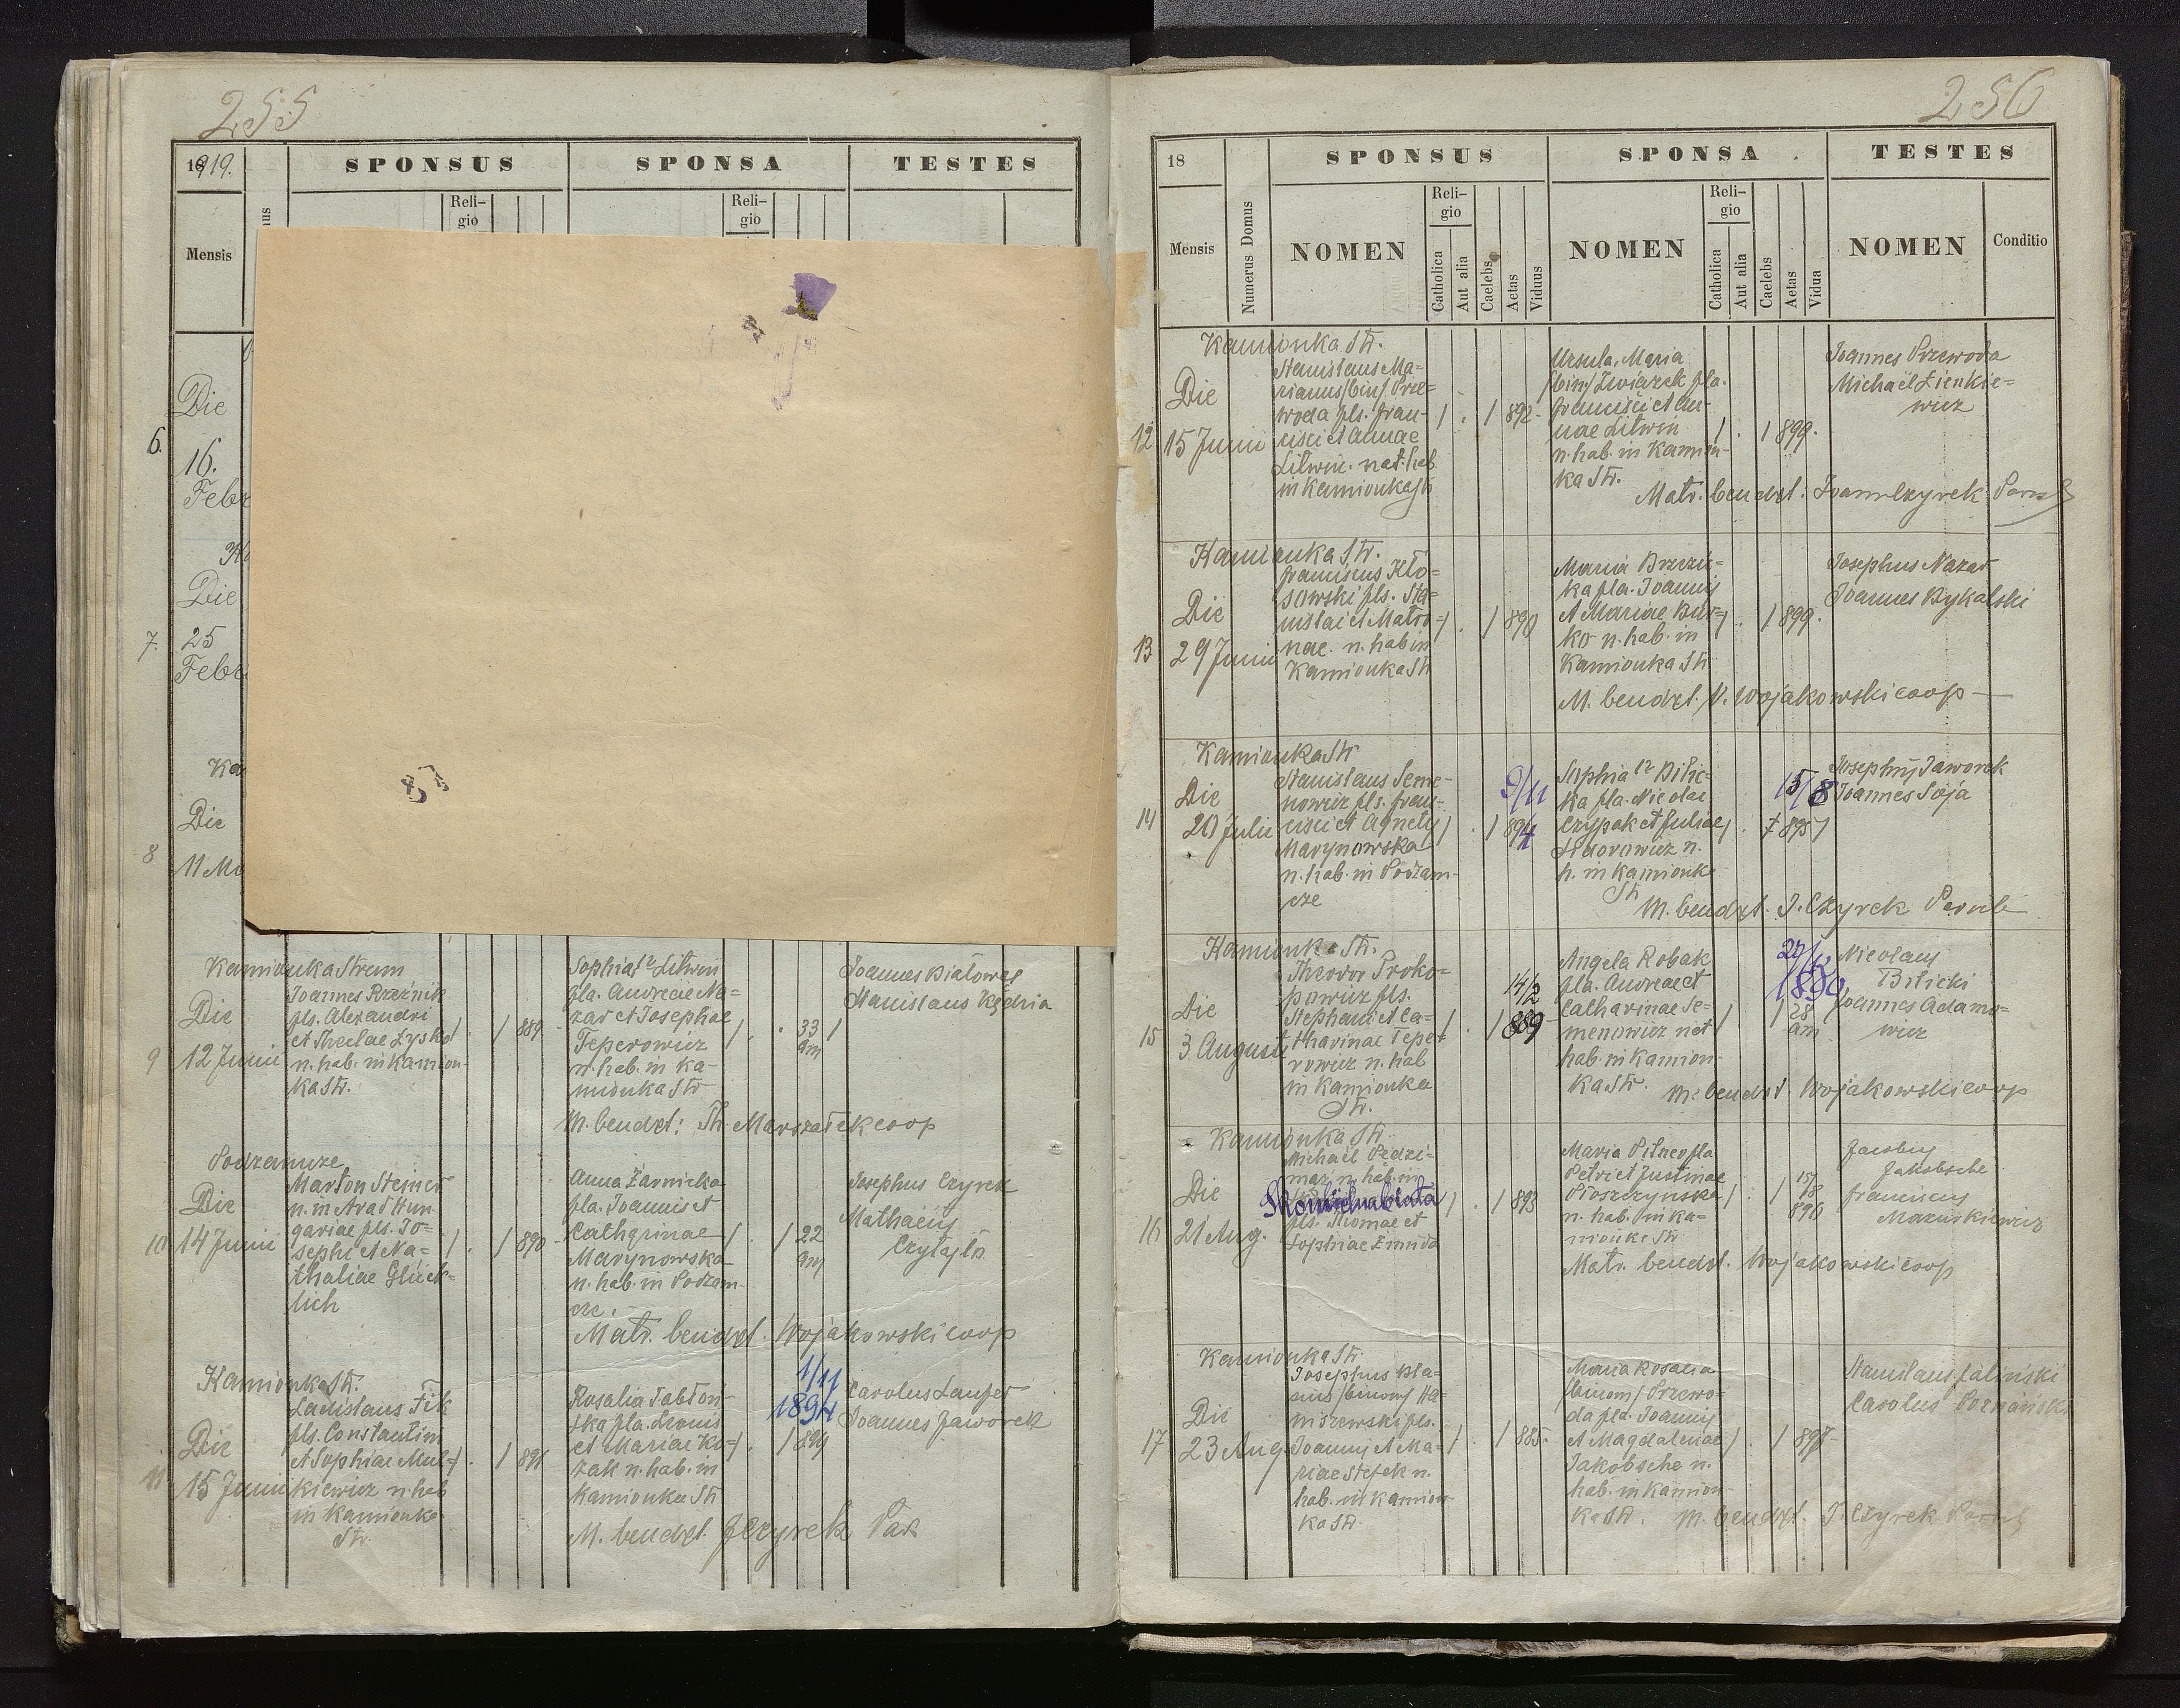 255
1919.
SPONSUS
SPONSA
TESTES
Mensis
Reli-
gio
Reli-
gio
6.
Die
16.
Febr
Die
7.
25
Febr
Ka
Die
8
11 Ma
Kamionka Strum
Die
9
12 Junii
Joannes Rzeźnik
pls. Alexandri
et Theclae Zysko
n. hab. in Kamion-
ka Str.
1 . 1 889
Sophia Litwin
pla. Andreae Na=
zar et Josephae
Teperowicz
n. hab. in Ka-
mionka Str
1 . . 33 1
an
Joannes Białowąs
Stanislaus Kędria
M. bened: Th. Marszałek coop
Podzamcze
Die
10
14 Junii
Marton Steiner
n. in Arad Hun-
gariae pls. Jo=
sephi et Na=
thaliae Glück=
lich
1 . 1 890
Anna Żarnicka
pla. Joannis et
Catharinae
Marynowska
n. hab. in Podzam-
cze.
1 . 1 22
Josephus Czyrek
Mathaeus
Matr. bened. Wojakowski coop
Kamionka Str.
Die
11
15 Junii
Ladislaus Fik
pls. Constantini
et Sophiae Mul=
kiewicz n. hab
in Kamionka
Str.
1 . 1 891
1/11
1894
Rosalia Jabłon-
ska pla. Leonis
et Mariae Ko=
zak n. hab. in
Kamionka Str
1 . 1 894
Carolus Laufer
Joannes Jaworek
M. bened. J Czyrek Par
256
18
SPONSUS
SPONSA
TESTES
Mensis
Numerus Domus
NOMEN
Reli-
gio
Catholica
Aut alia
Caelebs
Aetas
Viduus
NOMEN
Reli-
gio
Catholica
Aut alia
Caelebs
Aetas
Vidua
NOMEN
Conditio
Kamionka Str.
Die
12
15 Junii
Stanislaus Ma-
rianus /bin/ Prze=
woda pls. Fran-
cisci et Annae
Litwin. nat. hab
in Kamionka Str
1 . 1 892
Ursula, Maria
/bin/ Zwiarek pla.
Francisci et An-
nae Litwin
n. hab. in Kamion-
ka Str.
1 . 1 899.
Joannes Przewoda
Michaël Zienkie=
wicz
Matr. bened: Joann Czyrek Paroch
Kamionka Str.
Die
13
29 Junii
Franciscus Kło=
sowski pls. Sta=
nislai et Matro=
nae. n. hab in
Kamionka Str
1 . 1 890
Maria Brzezic=
ka pla. Joannis
et Mariae Bur=
ko n. hab. in
Kamionka Str
1 . 1 899.
Josephus Nazar
Joannes Bykalski
M. bened. V. Wojakowski coop
Kamionka Str
Die
14
20 Julii
Stanislaus Seme-
nowicz pls. Fran-
cisci et Agnetis
Marynowska
n. hab. in Podzam-
cze
9/11
1 . 1 894
Sophia Bilic=
ka pla. Nicolai
Czypak et Juliae
Sidorowicz n.
h. in Kamionk
Str
15/8
1 . 1 895
Josephus Jaworek
Joannes Soja
M. bened. J. Czyrek Paroch
Kamionka Str.
Die
15
3 Augusti
Theodor Proko=
powicz pls.
Stephani et Ca=
tharinae Tepe=
rowicz n. hab
in Kamionka
Str.
14/2
1 . 1 889
Angela Robak
pla. Andreae et
Catharinae Se=
menowicz nat
hab. in Kamion-
ka Str.
1890
1 . 1 28
an
Nicolaus
Bilicki
Joannes Adamo=
wicz
M. bened. Wojakowski coop
Kamionka Str
Die
16
21 Aug.
Michaël Pedzi-
marz n. hab. in
pls. Thomae et
Sophiae Żmuda
1 . 1 893
Maria Pitner pla
Petri et Justinae
Proszczynska
n. hab. in Ka-
mionka Str
18
890
Jacobus
Jakobsche
Franciscus
Mazurkiewicz
Matr. bened. Wojakowski coop
Kamionka Str.
Die
17
23 Aug.
Josephus Bla-
sius /binom/ Ha-
niszewski pls.
Joannis et Ma=
riae Stefek n.
hab. in Kamion-
ka Str.
1 . 1 885.
Maria Rosalia
/binom/ Przewo-
da pla. Joannis
et Magdalenae
Jakobsche n.
hab. in Kamion-
ka Str.
1 . 1 897
Stanislaus Faliński
Carolus Poznański
M. bened. J. Czyrek Paroch